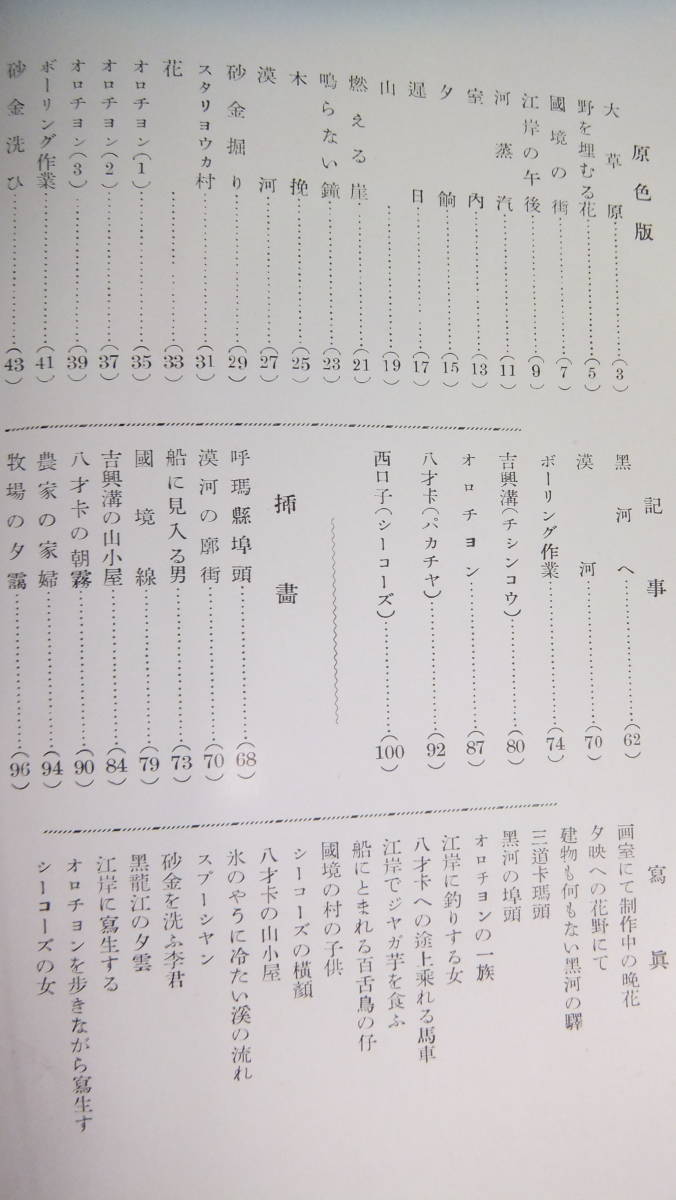 原色版
大草原……(3)
野を埋むる花……(5)
國境の街……(7)
江岸の午後……(9)
河蒸汽……(11)
室內……(13)
夕餉……(15)
遲日……(17)
山……(19)
燃える崖……(21)
鳴らない鐘……(23)
木挽……(25)
漠河……(27)
砂金掘り……(29)
スタリヨウカ村……(31)
花……(33)
オロチョン(1)……(35)
オロチョン(2)……(37)
オロチョン(3)……(39)
ボーリング作業……(41)
砂金洗ひ……(43)
記事
黑河へ……(62)
漠河……(70)
ボーリング作業……(74)
吉興溝(チシンコウ)……(80)
オロチョン……(87)
八才卡(パカチヤ)……(92)
西口子(シーコーズ)……(100)
挿畫
呼瑪縣埠頭……(68)
漠河の廓街……(70)
船に見入る男……(73)
國境線……(79)
吉興溝の山小屋……(84)
八才卡の朝霧……(90)
農家の家婦……(94)
牧場の夕靄……(96)
寫眞
画室にて制作中の晩花
夕映への花野にて
建物も何もない黑河の驛
三道卡瑪頭
黑河の埠頭
オロチヨンの一族
江岸に釣りする女
八才卡への途上乘れる馬車
江岸でジヤガ芋を食ふ
船にとまれる百舌鳥の仔
國境の村の子供
シーコーズの橫顏
八才卡の山小屋
氷のやうに冷たい溪の流れ
スプーシヤン
砂金を洗ふ李君
黑龍江の夕雲
江岸に寫生する
オロチヨンを步きながら寫生す
シーコーズの女